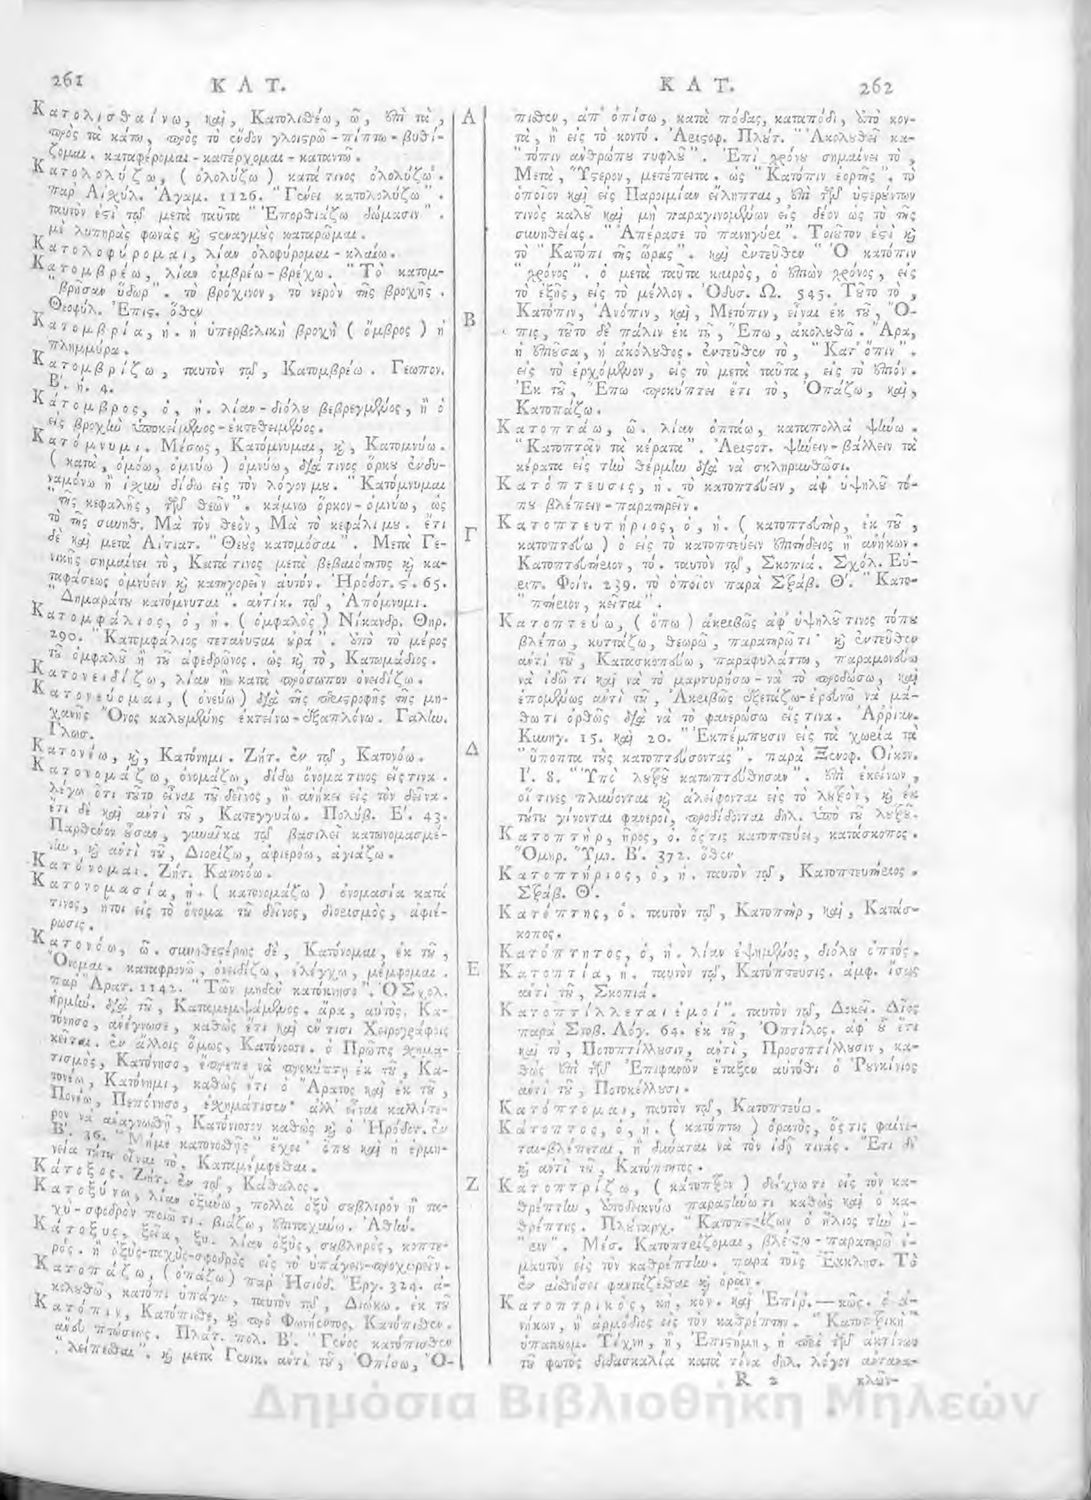 261 ΚΑΤ.
Κατολισθαίνω, καὶ, Κατολισθέω, ῶ, ἐπὶ τὰ,
πρὸς τὰ κάτω, πρὸς τὸ ἔνδον γλοιερῶ-πίπτω-βυθί-
ζομαι. καταφέρομαι-κατέρχομαι-καταντῶ.
Κατολολύζω, (ὀλολύζω) κατά τινος ὀλολύζω.
παρ' Αἰσχύλ. Ἀγαμ. 1126. "
ταυτόν ἐστι τῷ μετὰ ταῦτα "Ἐπορθιάζω δώμασιν".
μὲ λυπηρὰς φωνὰς καὶ στεναγμὸς καταρῶμαι.
Κατολοφύρομαι, λίαν ὀλοφύρομαι-κλαίω.
Κατομβρέω, λίαν ὀμβρέω-βρέχω. "Τὸ κατομ-
"βρῆσαν ὕδωρ". τὸ βρόχινον, τὸ νερὸν τῆς βροχῆς.
Θεοφύλ. Ἐπις. ὅθεν
Κατομβρία, ἡ. ἡ ὑπερβολικὴ βροχὴ (ὄμβρος) ἡ
πλημμύρα.
Κατομβρίζω, ταυτὸν τῷ, Κατομβρέω. Γεωπον.
Β'. ή. 4.
Κάτομβρος, ὁ, ἡ. λίαν-διόλου βεβρεγμένος, ἢ ὁ
εἰς βροχὴν ὑποκείμενος-ἐκτεθειμένος.
Κατόμνυμι. Μέσως, Κατόμνυμαι, καὶ, Κατομνύω.
(κατὰ, ὀμόω, ὀμνύω) ὀμνύω, διά τινος ὅρκου ἐνδυ-
ναμόνω ἢ ἰχὺν δίδω εἰς τὸν λόγον μου. "Κατόμνυμαι
"τῆς κεφαλῆς, τῶν θεῶν". κάμνω ὅρκον-ὀμνύω, ὡς
τὸ τῆς συνηθ. Μὰ τὸν θεὸν, Μὰ τὸ κεφάλι μου. ἔτι
δὲ καὶ μετὰ Αἰτιατ. "Θεοὺς κατομόσαι". Μετὰ Γε-
νικῆς σημαίνει τό, Κατά τινος μετὰ βεβαιότητος καὶ κα-
ταφάσεως ὀμνύειν καὶ κατηγορεῖν αὐτόν. Ἡρόδοτ. ς. 65.
"Δημαράτου κατόμνυται". ἀντίκ. τῷ, Ἀπόμνυμι.
Κατομφάλιος, ὁ, ἡ. (ὀμφαλὸς) Νίκανδρ. Θηρ.
290. "Κατομφάλιος τετάνυσται οὐρά". ὑπὸ τὸ μέρος
τοῦ ὀμφαλοῦ ἢ τοῦ ἀφεδρῶνος. ὡς καὶ τὸ, Κατωμάδιος.
Κατονειδίζω, λίαν ἢ κατὰ πρόσωπον ὀνειδίζω.
Κατονεύομαι, (ὀνεύω) διὰ τῆς περιστροφῆς τῆς μη-
χανῆς Ὄνος καλουμένης ἐκτείνω-ἐξαπλόνω. Γαλην.
Γλωσ.
Κατονέω, καὶ, Κατόνημι. Ζήτ. ἐν τῷ, Κατονόω.
Κατονομάζω, ὀνομάζω, δίδω ὄνομα τινὸς εἴς τινα.
λέγω ὅτι τοῦτο εἶναι τοῦ δεῖνος, ἢ ἀνήκει εἰς τὸν δεῖνα.
ἔτι δὲ καὶ ἀντὶ τοῦ, Κατεγγυάω. Πολύβ. Ε'. 43.
Παρθένον οὖσαν, γυναῖκα τῷ βασιλεῖ κατωνομασμέ-
νην, καὶ ἀντὶ τοῦ, Διορίζω, ἀφιερόω, ἁγιάζω.
Κατόνομαι. Ζήτ. Κατονόω.
Κατονομασία, ἡ. (κατονομάζω) ὀνομασία κατά
τινος, ἤτοι εἰς τὸ ὄνομα τοῦ δεῖνος, διορισμὸς, ἀφιέ-
ρωσις.
Κατονόω, ῶ. συνηθεστέρως δὲ, Κατόνομαι, ἐκ τοῦ,
Ὄνομαι. καταφρονῶ, ὀνειδίζω, ἐλέγχω, μέμφομαι.
παρ' Ἀρατ. 1142. "Τῶν μηδὲν κατόνησο". Ὁ Σχολ.
ἑρμην. διὰ τοῦ, Καταμεμψάμενος. ἄρα, αὐτὸς, Κα-
τόνησο, ἀνέγνωσε, καθὼς ἔτι καὶ ἔν τισι Χειρογράφοις
κεῖται. ἐν ἄλλοις ὅμως, Κατόνοσσι. ὁ Πρῶτος χημα-
τισμὸς, Κατόνησο, ἔπρεπε νὰ προκύπτῃ ἐκ τοῦ, Κα-
τονέω, Κατόνημι, καθὼς ἔτι ὁ Ἄρατος καὶ ἐκ τοῦ,
Πονέω, Πεπόνησο, ἐχημάτισεν· ἀλλ' εἶναι καλλίτε-
ρον νὰ ἀναγνωσθῇ, Κατόνοσσο καθὼς καὶ ὁ Ἡρόδοτ. ἐν
Β'. 36. "Μήμε κατονοσθῇς" ἔχει· ὅπου καὶ ἡ ἑρμη-
νεία τούτου εἶναι τὸ, Καταμέμφεσθαι.
Κάτοξος. Ζήτ. ἐν τῷ, Κάθαλος.
Κατοξύνω, λίαν ὀξύνω, πολλὰ ὀξὺ σουβλιρὸν ἢ τα-
χὺ-σφοδρὸν ποιῶ τι. βιάζω, ἐπιταχύνω. Ἀθην.
Κάτοξυς, ξεῖα, ξυ. λίαν ὀξὺς, σουβληρὸς, κοπτε-
ρός. ἢ ὀξὺς-ταχὺς-σφοδρὸς εἰς τὸ ὑπάγειν-προχωρεῖν.
Κατοπάζω, (ὀπάζω) παρ' Ἡσιόδ. Ἔργ. 324. ἀ-
κολουθῶ, κατόπι ὑπάγω, ταυτὸν τῷ, Διώκω. ἐκ τοῦ
Κατόπιν, Κατόπισθε, καὶ πρὸ Φωνήεντος, Κατόπισθεν.
ἄνευ πτώσεως. Πλάτ. πολ. Β'. "Γένος κατόπισθεν
"λείπεσθαι". καὶ μετὰ Γενικ. ἀντὶ τοῦ, Ὀπίσω, Ὀ-
Α
Β
Γ
Δ
Ε
Ζ
ΚΑΤ. 262
πισθεν, ἀπ' ὀπίσω, κατὰ πόδας, καταπόδι, ὑπὸ κον-
τὰ, ἢ εἰς τὸ κοντό. Ἀριστοφ. Πλοῦτ. "Ἀκολουθεῖ κα-
"τόπιν ἀνθρώπου τυφλοῦ". Ἐπὶ χρόνου σημαίνει τὸ,
Μετὰ, Ὕστερον, μετέπειτα. ὡς "Κατόπιν ἑορτῆς". τὸ
ὁποῖον καὶ εἰς Παροιμίαν εἴληπται, ἐπὶ τῶν ὑστερούντων
τινὸς καλοῦ καὶ μὴ παραγινομένων εἰς δέον ὡς τὸ τῆς
συνηθείας. "Ἀπέρασε τὸ πανηγύρι". Τοιοῦτον ἐστὶ καὶ
τὸ "Κατόπι τῆς ὥρας". καὶ ἐντεῦθεν "Ὁ κατόπιν
"χρόνος". ὁ μετὰ ταῦτα καιρὸς, ὁ ἐπιὼν χρόνος, εἰς
τὸ ἑξῆς, εἰς τὸ μέλλον. Ὀδυσ. Ω. 545. Τοῦτο τὸ,
Κατόπιν, Ἀνόπιν, καὶ, Μετόπιν, εἶναι ἐκ τοῦ, Ὄ-
πις, τοῦτο δὲ πάλιν ἐκ τοῦ, Ἕπω, ἀκολουθῶ. Ἄρα,
ἡ ἐπιοῦσα, ἡ ἀκόλουθος. ἐντεῦθεν τὸ, "Κατ' ὄπιν".
εἰς τὸ ἐρχόμενον, εἰς τὸ μετὰ ταῦτα, εἰς τὸ ἐπιόν.
Ἐκ τοῦ, Ἕπω προκύπτει ἔτι τὸ, Ὀπάζω, καὶ,
Κατοπάζω.
Κατοπτάω, ῶ. λίαν ὀπτάω, καταπολλὰ ψήνω.
"Κατοπτᾶν τὰ κέρατα". Ἀριστοτ. ψήνειν-βάλλειν τὰ
κέρατα εἰς τὴν θέρμην διὰ νὰ σκληρυνθῶσι.
Κατόπτευσις, ἡ. τὸ κατοπτεύειν, ἀφ' ὑψηλοῦ τό-
που βλέπειν-παρατηρεῖν.
Κατοπτευτήριος, ὁ, ἡ. (κατοπτευτὴρ, ἐκ τοῦ,
κατοπτεύω) ὁ εἰς τὸ κατοπτεύειν ἐπιτήδειος ἢ ἀνήκων.
Κατοπτευτήριον, τό. ταυτὸν τῷ, Σκοπιά. Σχόλ. Εὐ-
ριπ. Φοίν. 239. τὸ ὁποῖον παρὰ Στράβ. Θ'. "Κατο-
"πτήριον, κεῖται".
Κατοπτεύω, (ὄπω) ἀκριβῶς ἀφ' ὑψηλοῦ τινος τόπου
βλέπω, κυττάζω, θεωρῶ, παρατηρῶ τι· καὶ ἐντεῦθεν
ἀντὶ τοῦ, Κατασκοπεύω, παραφυλάττω, παραμονεύω
νὰ ἰδῶ τι καὶ νὰ τὸ μαρτυρήσω-νὰ τὸ προδώσω, καὶ
ἑπομένως ἀντὶ τοῦ, Ἀκριβῶς ἐξετάζω-ἐρευνῶ νὰ μά-
θω τι ὀρθῶς διὰ νὰ τὸ φανερώσω εἴς τινα. Ἀρριαν.
Κυνηγ. 15. καὶ 20. "Ἐκπέμπουσιν εἰς τὰ χωρία τὰ
"ὕποπτα τοὺς κατοπτεύσοντας". παρὰ Ξενοφ. Οἰκον.
Γ. 8. "Ὑπὸ λουτροῦ κατωπτεύθησαν". ἐπὶ ἐκείνων,
οἵτινες πλύνονται καὶ ἀλείφονται εἰς τὸ λουτρὸν, καὶ ἐκ
τούτου γίνονται φανεροί, προδίδονται δηλ. ὑπὸ τοῦ λουτροῦ.
Κατοπτὴρ, ῆρος, ὁ. ὅςτις κατοπτεύει, κατάσκοπος.
Ὅμηρ. Ὕμν. Β'. 372. ὅθεν
Κατοπτήριος, ὁ, ἡ. ταυτὸν τῷ, Κατοπτευτήριος.
Στράβ. Θ'.
Κατόπτης, ὁ. ταυτὸν τῷ, Κατοπτὴρ, καὶ, Κατάσ-
κοπος.
Κατόπτητος, ὁ, ἡ. λίαν ἑψημένος, διόλου ὀπτός.
Κατοπτία, ἡ. ταυτὸν τῷ, Κατόπτευσις. ἀμφ. ἴσως
ἀντὶ τοῦ, Σκοπιά.
Κατοπτίλλεται ἐμοί". ταυτὸν τῷ, Δοκεῖ. Δῖος
παρὰ Στοβ. Λόγ. 64. ἐκ τοῦ, Ὀπτίλος. ἀφ' οὗ ἔτι
καὶ τὸ, Ποτοπτίλλουσιν, ἀντὶ, Προσοπτίλλουσιν, κα-
θὼς ἐπὶ τῶν Ἐπιφανῶν ἔταξεν αὐτόθι ὁ Ῥουνκίνιος
ἀντὶ τοῦ, Ποτοκέλλουσι.
Κατόπτομαι, ταυτὸν τῷ, Κατοπτεύω.
Κάτοπτος, ὁ, ἡ. (κατόπτω) ὁρατὸς, ὅςτις φαίνε-
ται-βλέπεται, ἢ δύναται νὰ τὸν ἰδῇ τινάς. Ἔτι δὲ
καὶ ἀντὶ τοῦ, Κατόπτητος.
Κατοπτρίζω, (κάτοπτρον) δείχνω τι εἰς τὸν κα-
θρέπτην, ὑποδεικνύω παραστήνω τι καθὼς καὶ ὁ κα-
θρέπτης. Πλούταρχ. "Κατοπτρίζων ὁ ἥλιος τὴν ἴ-
"ριν". Μέσ. Κατοπτρίζομαι, βλέπω-παρατηρῶ ἐ-
μαυτὸν εἰς τὸν καθρέπτην. παρὰ τοῖς Ἐκκλησ. Τὸ
ἐν αἰσθήσει φαντάζεσθαι καὶ ὁρᾶν.
Κατοπτρικὸς, κὴ, κὸν. καὶ Ἐπίρ.—κῶς. ὁ ἀ-
νήκων, ἢ ἁρμόδιος εἰς τὸν καθρέπτην. "Κατοπτρικὴ"
ὑπακουομ. Τέχνη, ἢ, Ἐπιστήμη, ἡ περὶ τῶν ἀκτίνων
τοῦ φωτὸς διδασκαλία κατὰ τίνα δηλ. λόγον ἀντανα-
R 2 κλῶν-
Δημόσια Βιβλιοθήκη Μηλεών